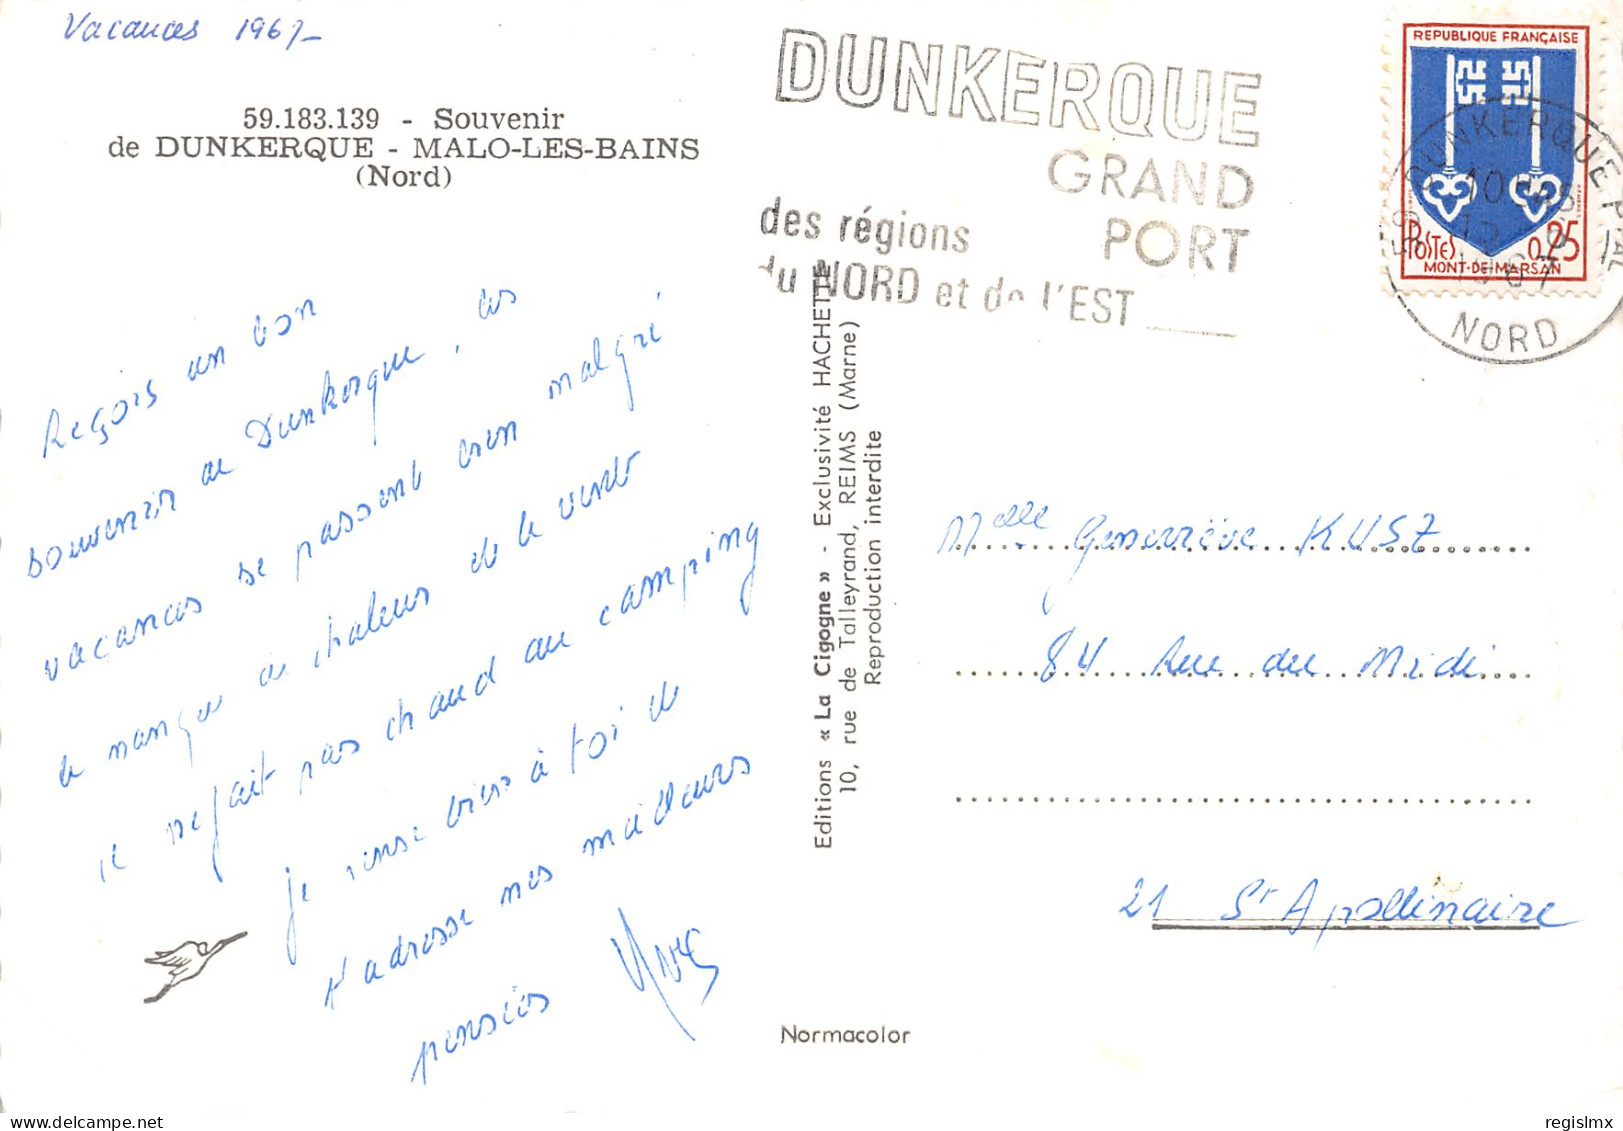 Vacances 1967
59.183.139 - Souvenir
de DUNKERQUE - MALO-LES-BAINS
(Nord)
Reçois un bon
souvenir de Dunkerque, les
vacances se passent bien malgré
le manque de chaleur de le vent
il ne fait pas chaud au camping
Je pense bien à toi de
t'adresse mes meilleurs
pensées Yves
Editions « La Cigogne » - Exclusivité HACHETTE
10, rue de Talleyrand, REIMS (Marne)
Reproduction interdite
Normacolor
DUNKERQUE
GRAND
PORT
des régions
du NORD et de l'EST
REPUBLIQUE FRANÇAISE
POSTES 0,25
MONT-DE-MARSAN
59 DUNKERQUE PAL
10H
1967
NORD
Melle Geneviève KUSZ
84 Rue du Midi
21 St Apollinaire
regislmx